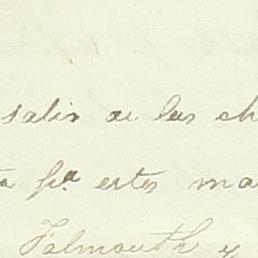 salir de las ch
ta pa estos ma
Falmouth y